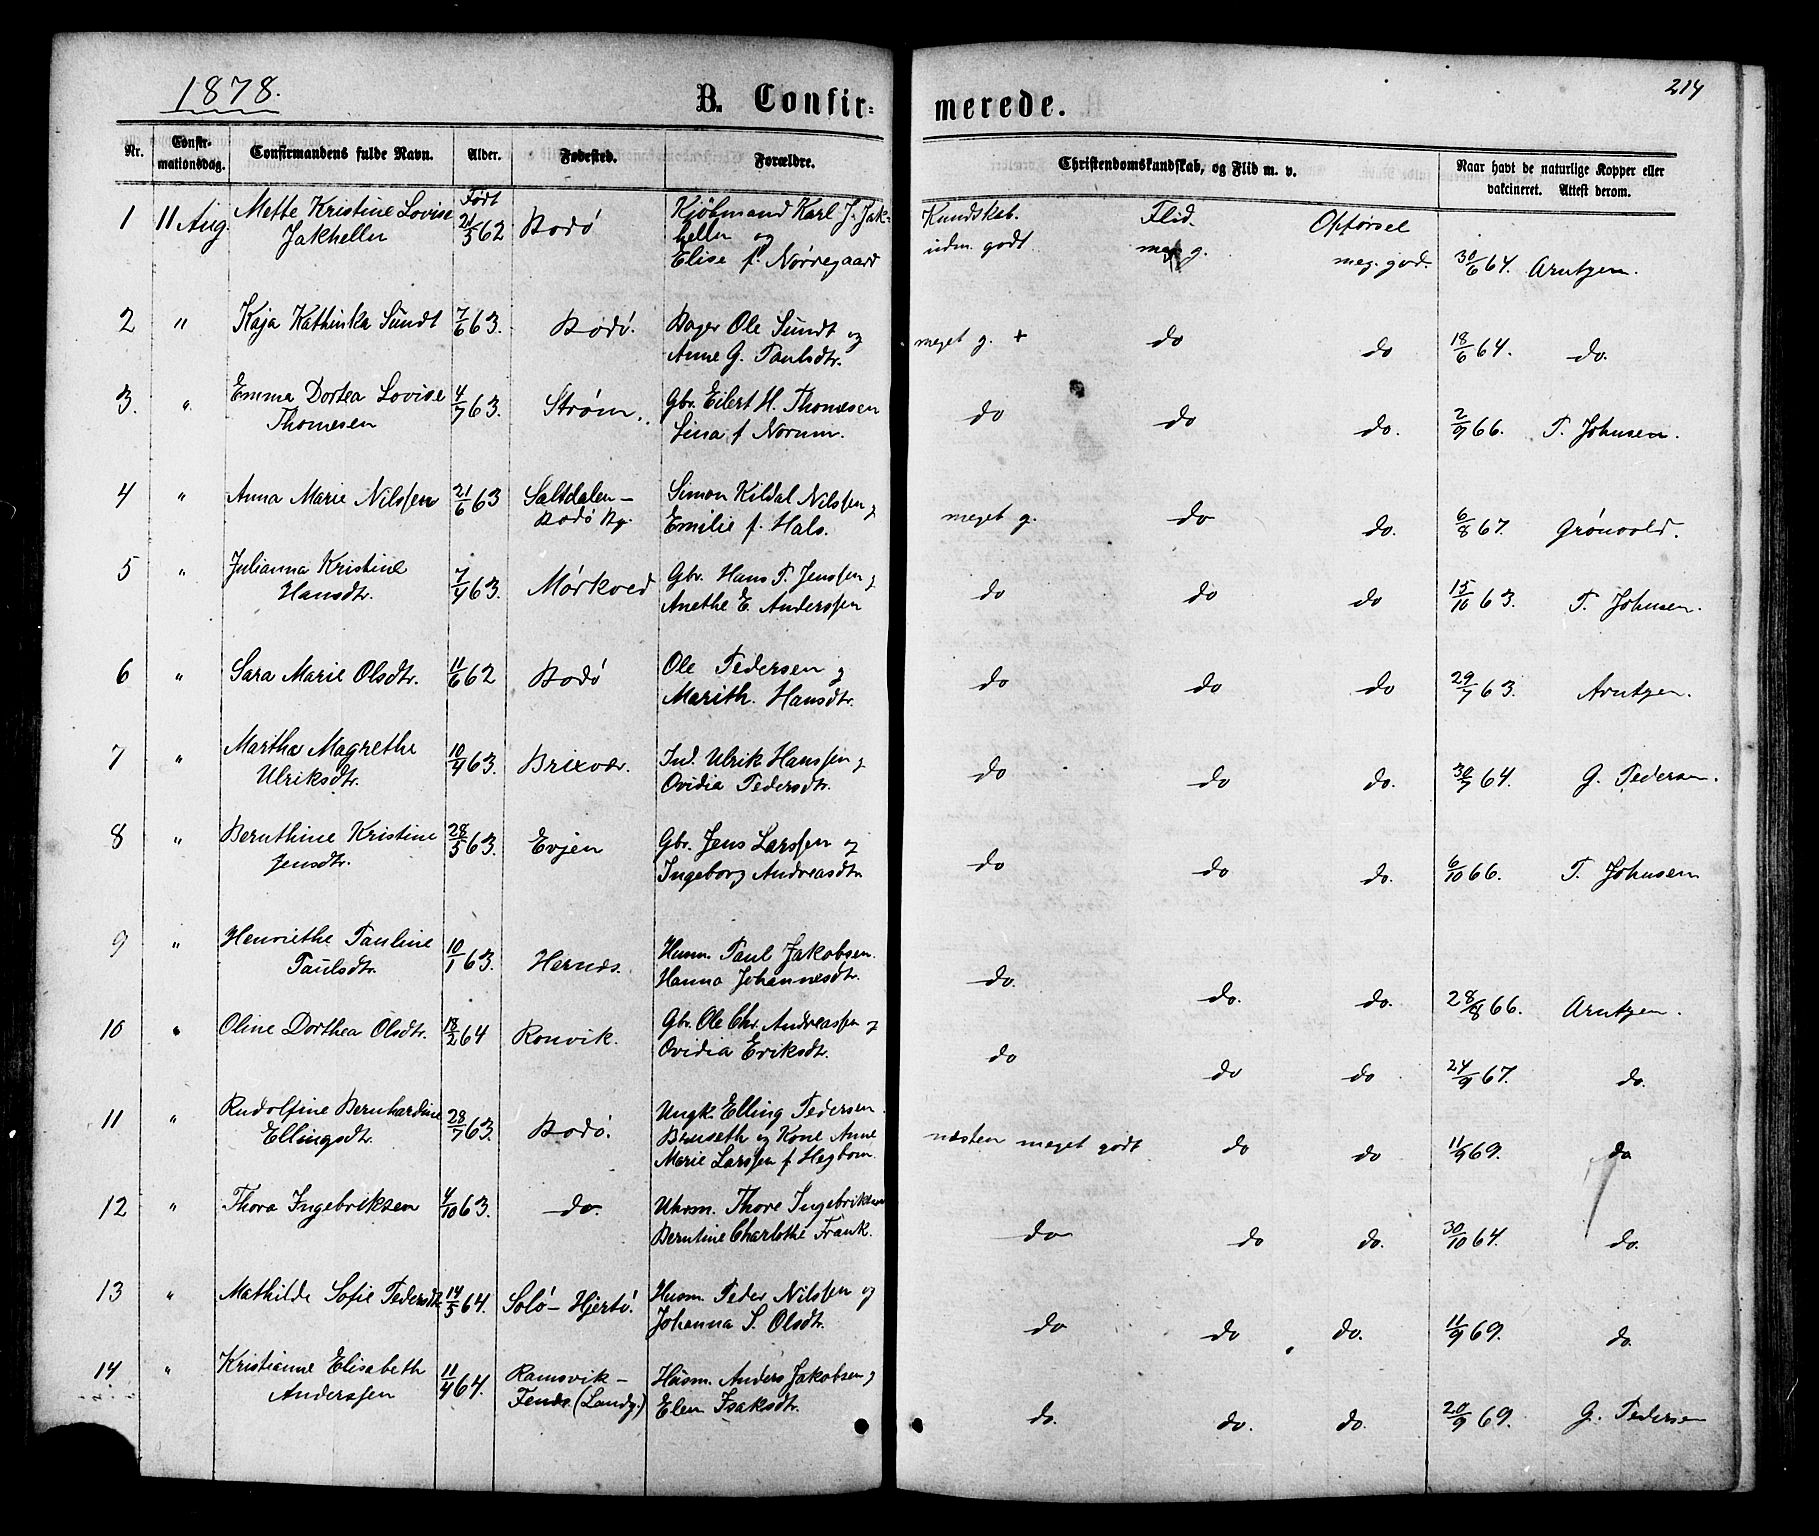 1878.
B. Confir=
merede.
214
Nr.
Confir-
mationsdag.
Confirmandens fulde Navn.
Alder.
Fødested.
Forældre.
Christendomskundskab, og Flid m. v.
Naar havt de naturlige Kopper eller
vakcineret. Attest derom.
Født
Kundskab. Flid. Opførsel
1 11 Aug. Mette Kristine Lovise
Jakhelln
21/5 62 Bodø
Kjøbmand Karl J. Jak-
helln og
Elise f. Nørregaard
udm. godt meg. g. meg. god. 30/6 64. Arntzen.
2 " Kaja Kathinka Sundt 7/6 63. Bodø.
Bager Ole Sundt og
Anne G. Paulsdtr.
meget g. + do do 18/6 64. do.
3. " Emma Dortea Lovise
Thomesen
4/7 63. Strøm.
Gbr. Eilert H. Thomesen
Lina f Norum.
do do do. 2/9 66. T. Johnsen.
4 " Anna Marie Nilssen 21/6 63
Saltdalen -
Bodø By.
Simon Kildal Nilssen og
Emilie f. Hals.
meget g. do do. 6/8 67. Grønvold.
5 " Julianna Kristine
Hansdtr.
7/4 63. Mørkved
Gbr. Hans P. Jenssen og
Anethe E. Anderssen
do do do 15/10 63. T. Johnsen.
6 " Sara Marie Olsdtr. 11/6 62 Bodø
Ole Pedersen og
Marith. Hansdtr.
do do do 29/7 63. Arntzen.
7 " Martha Magrethe
Ulriksdtr.
10/4 63. Brixvær.
Ind. Ulrik Hanssen og
Ovidia Pedersdtr.
do do do. 30/7 64. G. Pedersen.
8 " Bernthine Kristine
Jensdtr.
28/5 63. Evjen
Gbr. Jens Larssen og
Ingeborg Andreasdtr
do do do. 6/10 66. T. Johnsen
9 " Henriethe Pauline
Paulsdtr.
10/1 63. Hernes.
Husm. Paul Jakobsen.
Hanna Johannesdtr.
do. do. do. 28/8 66. Arntzen.
10 " Oline Dorthea Olsdtr. 18/2 64 Ronvik.
Gbr. Ole Chr. Andreassen og
Ovidia Eriksdtr.
do do do 24/9 67. do.
11 " Rudolfine Bernhardine
Ellingsdtr.
28/7 63. Bodø.
Ungk. Elling Pedersen
Benseth og Kone Anne
Marie Larssen f Hegbom.
næsten meget godt do do 11/9 69. do
12 " Thora Ingebriksen 4/10 63. do.
Uhrm. Thore Ingebriksen
Berntine Charlothe Frank.
do do do. 30/10 64. do.
13 " Mathilde Sofie Pedersdtr. 14/5 64. Solø - Hjertø.
Husm. Peder Nilssen og
Johanna S. Olsdtr.
do do do. 11/9 69. do.
14 " Kristianne Elisabeth
Anderssen
11/4 64.
Ramsvik -
Fenes. (Landg.)
Husm. Anders Jakobsen og
Elen Isaksdtr.
do. do. do. 20/9 69. G. Pedersen